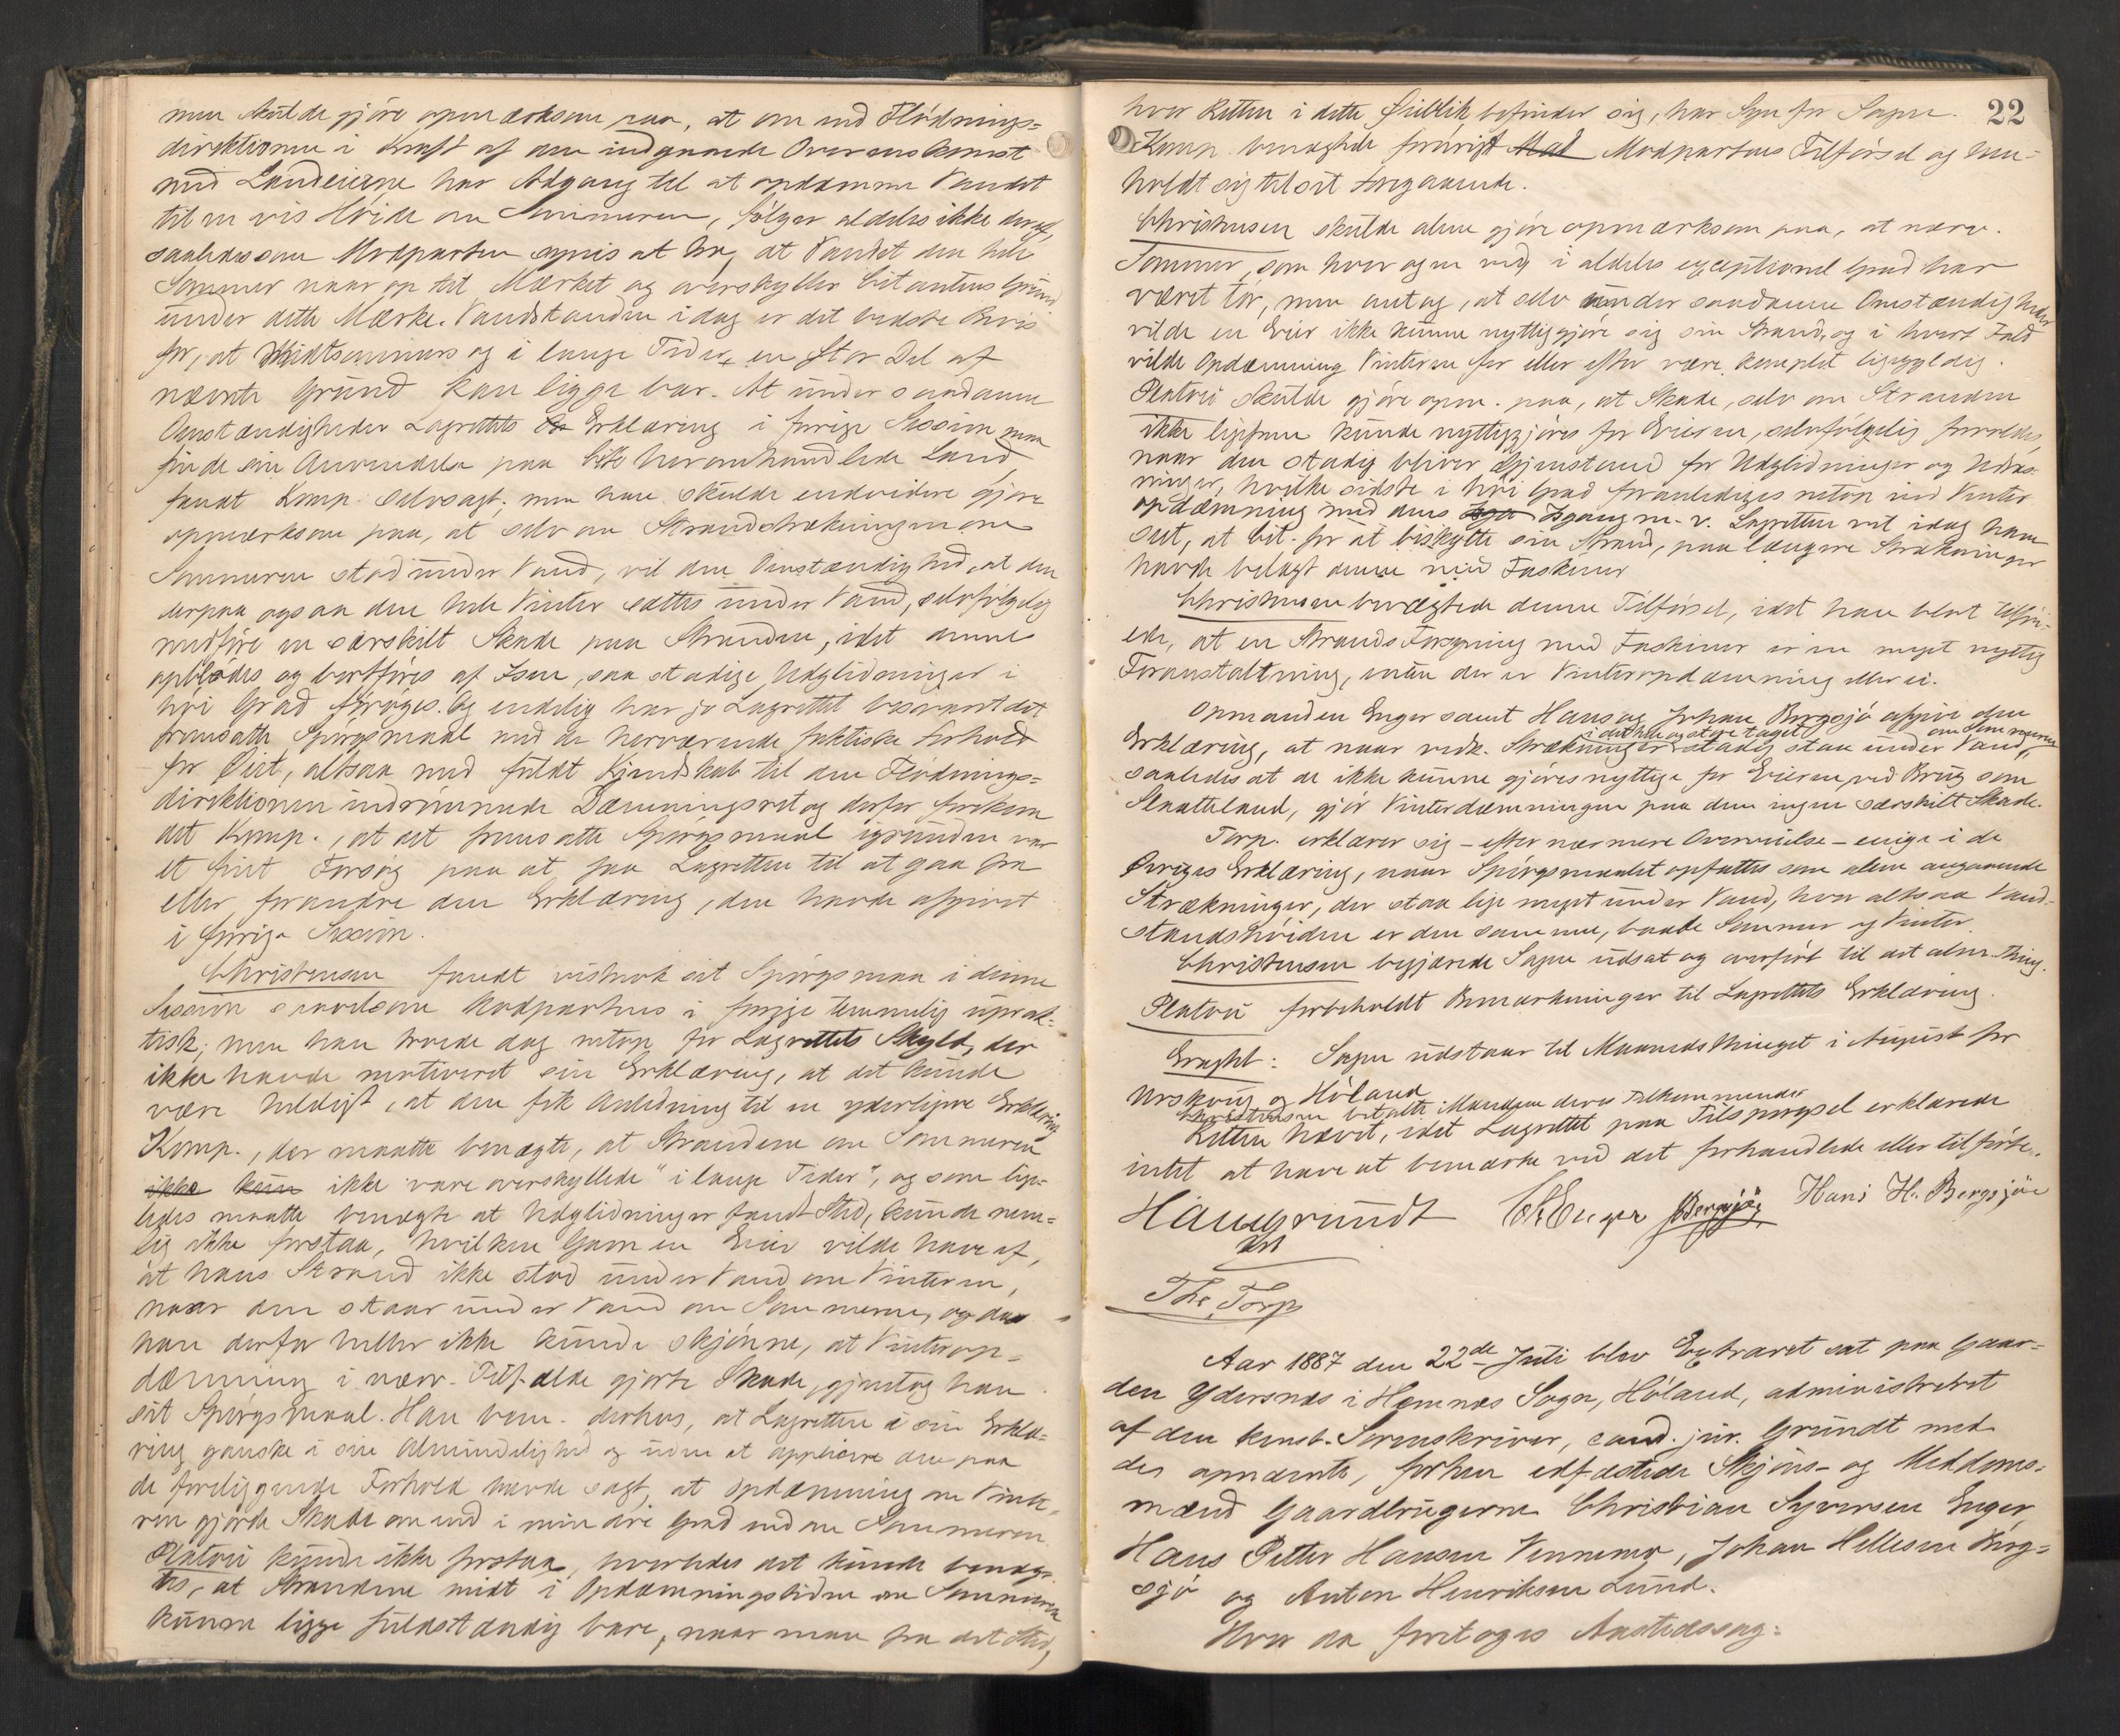 men skulde gjøre opmærksom paa, at om end Flødnings=
direktionen i Kraft af den indgaaede Overenskomst
med Landeierne har Adgang til at opdæmme Vandet
til en vis Høide om Sommeren, følger aldeles ikke deraf,
saaledes som Modparten synes at tro, at Vandet den hele
Sommer naar op til Mærket og overskyller Citantens Grund
under dette Mærke. Vandstanden idag er det bedste Bevis
for, at Midtsommers og i lange Tider en stor Del af
nævnte Grund kan ligge bar. At under saadanne
Omstændigheder Lagrettets Erklæring i forrige Session maa
finde sin Anvendelse paa heromhandlede Land,
fandt Komp. selvsagt; men han skulde endvidere gjøre
opmærksom paa, at selv om Strandstrækningerne om
Sommeren stod under Vand, vil den Omstændighed, at den
derpaa ogsaa den hele Vinter sættes under Vand, selvfølgelig
medføre en særskilt Skade paa Stranden, idet denne
opblødes og bortføres af Isen, saa stadige Udglidninger i
høi Grad forøges. Og endelig har jo Lagrettet besvaret det
fremsatte Spørgsmaal med de herværende faktiske Forhold
for Øiet, altsaa med fuldt Kjendskab til den Flødnings=
direktionen indrømmede Dæmningsret og derfor forekom
det Komp., at det fremsatte Spørgsmaal igrunden var
et fint Forsøg paa at faa Lagretten til at gaa fra
eller forandre den Erklæring, den havde afgivet
i forrige Session.
Christensen fandt vistnok sit Spørgsmaal i denne
Session saavelsom Modpartens i forrige temmelig uprak=
tisk; men han troede dog netop for Lagrettets Skyld, der
ikke havde motiveret sin Erklæring, at det kunde
være heldigt, at den fik Anledning til en yderligere Erklæring
Komp., der maatte benægte, at Strandene om Sommeren
ikke kun ikke vare overskyllede "i lange Tider", og som lige=
ledes maatte benægte at Udglidninger fandt Sted, kunde nem=
lig ikke forstaa, hvilken Gavn en Eier vilde have af,
at hans Strand ikke stod under Vand om Vinteren,
naar den staar under Vand om Sommeren, og da
han derfor heller ikke kunde skjønne, at Vinterop=
dæmning i nærv. Tilfælde gjorde Skade, gjentog han
sit Spørgsmaal. Han bem. derhos, at Lagretten i sin Erklæ=
ring ganske i sin Almindelighed og uden at applicere den paa
de foreliggende Forhold havde sagt, at Opdæmning om Vinte=
ren gjorde Skade om end i mindre Grad end om Sommeren
Platou kunde ikke forstaa, hvorledes det kunde benæg=
tes, at Strandene midt i Opdæmningstiden om Sommeren
kunne ligge fuldstændig bare, naar man fra det Sted,
22
hvor Retten i dette Øieblik befinder sig, har Syn for Sagen.
Komp. benægtede forøvrigt Mod Modpartens Tilførsel og hen=
holdt sig til sit Foregaaende.
Christensen skulde alene gjøre opmærksom paa, at nærv.
Sommer, som hver og en ved, i aldeles exceptionel Grad har
været tør, men antog, at selv under saadanne Omstændigheder
vilde en Eier ikke kunne nyttiggjøre sig sin Strand, og i hvert Fald
vilde Opdæmning Vinteren før eller efter være komplet ligegyldig.
Platou skulde gjøre opm. paa, at Skade, selv om Stranden
ikke ligefrem kunde nyttiggjøres for Eieren, selvfølgelig forvoldes,
naar den stadig bliver Gjenstand for Udglidninger og Udras=
ninger, hvilke sidste i høi Grad foranlediges netop ved Vinter
opdæmning med dens Isgang m. v. Lagretten vil idag have
seet, at Cit. for at beskytte sin Strand, paa længere Strækninger
havde belagt denne med Faskiner
Christensen benægtede denne Tilførsel, idet han blot tilføi=
ede, at en Strands Forsyning med Faskiner er en meget nyttig
Foranstaltning, enten der er Vinteropdæmning eller ei.
Opmanden Enger samt Hans og Johan Bergsjø afgive den
Erklæring, at naar vedk. Strækninger i det hele og store taget stadig staa under Vand om Sommeren,
saaledes at de ikke kunne gjøres nyttige for Eieren ved Brug som
Slaatteland, gjør Vinterdæmningen paa dem ingen særskilt Skade.
Torp. erklærer sig – efter nærmere Overveielse – enig i de
Øvriges Erklæring, naar Spørgsmaalet opfattes som alene angaaende
Strækninger, der staa lige meget under Vand, hvor altsaa Vand=
standshøiden er den samme, baade Sommer og Vinter.
Christensen begjærede Sagen udsat og overført til det alm. Thing.
Platou forbeholdt Bemærkninger til Lagrettets Erklæring.
Eragtet: Sagen udstaar til Maanedsthinget i August for
Urskoug og Høland
Christensen betalte Mændene deres Tilkommende
Retten hævet, idet Lagrettet paa Tilspørgsel erklærede
intet at have at bemærke ved det forhandlede eller tilførte.
Haugrundt
C S Enger JBergsjø Hans H. Bergsjøe
Ths. Torp
Aar 1887 den 22de Juli blev Extraret sat paa Gaar=
den Ydersnes i Hemnæs Sogn, Høland, administreret
af den konst. Sorenskriver, cand. jur. Grundt med
des opnævnte, forhen edfæstede Skjøns- og Meddoms=
mænd Gaardbrugerne Christian Syversen Enger,
Hans Petter Hansen Vennemo, Johan Hellesen Berg=
sjø og Anton Henriksen Lund.
Hvor da foretoges Aastedssag: